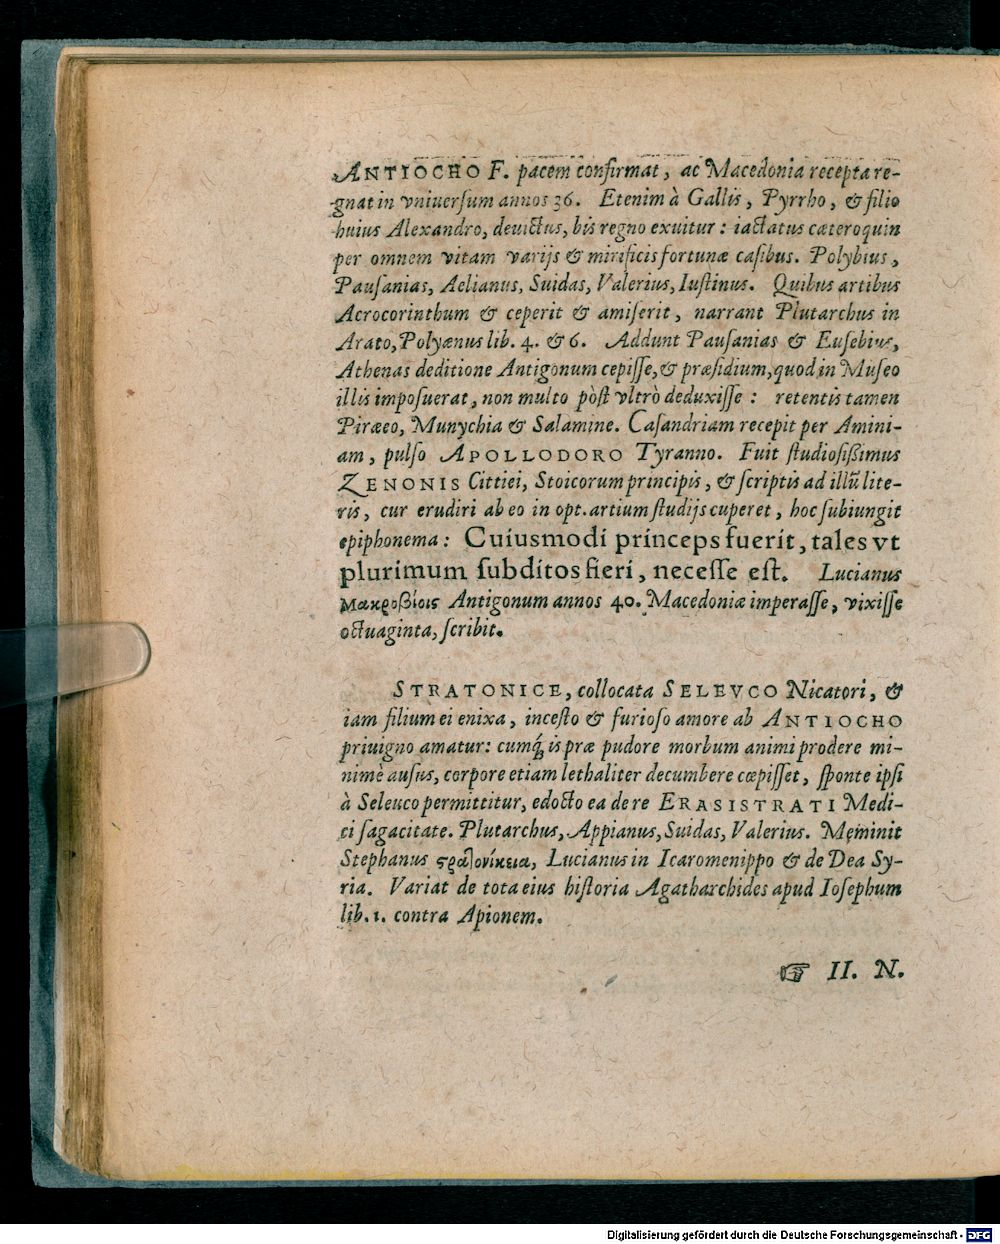 ANTIOCHO F. pacem confirmat, ac Macedonia recepta re-
gnat in vniuerſum annos 36. Etenim à Gallis, Pyrrho, & filio
huius Alexandro, deuictus, bis regno exuitur: iactatus cæteroquin
per omnem vitam varijs & mirificis fortunæ caſibus. Polybius,
Pauſanias, Aelianus, Suidas, Valerius, Iuſtinus. Quibus artibus
Acrocorinthum & ceperit & amiſerit, narrant Plutarchus in
Arato, Polyænus lib. 4. & 6. Addunt Pauſanias & Euſebius,
Athenas deditione Antigonum cepiſſe, & præſidium, quod in Muſeo
illis impoſuerat, non multo pòſt vltrò deduxiſſe: retentis tamen
Piræeo, Munychia & Salamine. Caſandriam recepit per Amini-
am, pulſo APOLLODORO Tyranno. Fuit ſtudioſißimus
ZENONIS Cittiei, Stoicorum principis, & ſcriptis ad illū lite-
ris, cur erudiri ab eo in opt. artium ſtudijs cuperet, hoc ſubiungit
epiphonema: Cuiusmodi princeps fuerit, tales vt
plurimum ſubditos fieri, neceſſe eſt. Lucianus
Μακροβίοις Antigonum annos 40. Macedoniæ imperaſſe, vixiſſe
octuaginta, ſcribit.
STRATONICE, collocata SELEVCO Nicatori, &
iam filium ei enixa, inceſto & furioſo amore ab ANTIOCHO
priuigno amatur: cumq́; is præ pudore morbum animi prodere mi-
nimè auſus, corpore etiam lethaliter decumbere cœpiſſet, ſponte ipſi
à Seleuco permittitur, edocto ea de re ERASISTRATI Medi-
ci ſagacitate. Plutarchus, Appianus, Suidas, Valerius. Meminit
Stephanus ϛρατονίκεια, Lucianus in Icaromenippo & de Dea Sy-
ria. Variat de tota eius hiſtoria Agatharchides apud Ioſephum
lib. 1. contra Apionem.
☞ II. N.
Digitalisierung gefördert durch die Deutsche Forschungsgemeinschaft - DFG